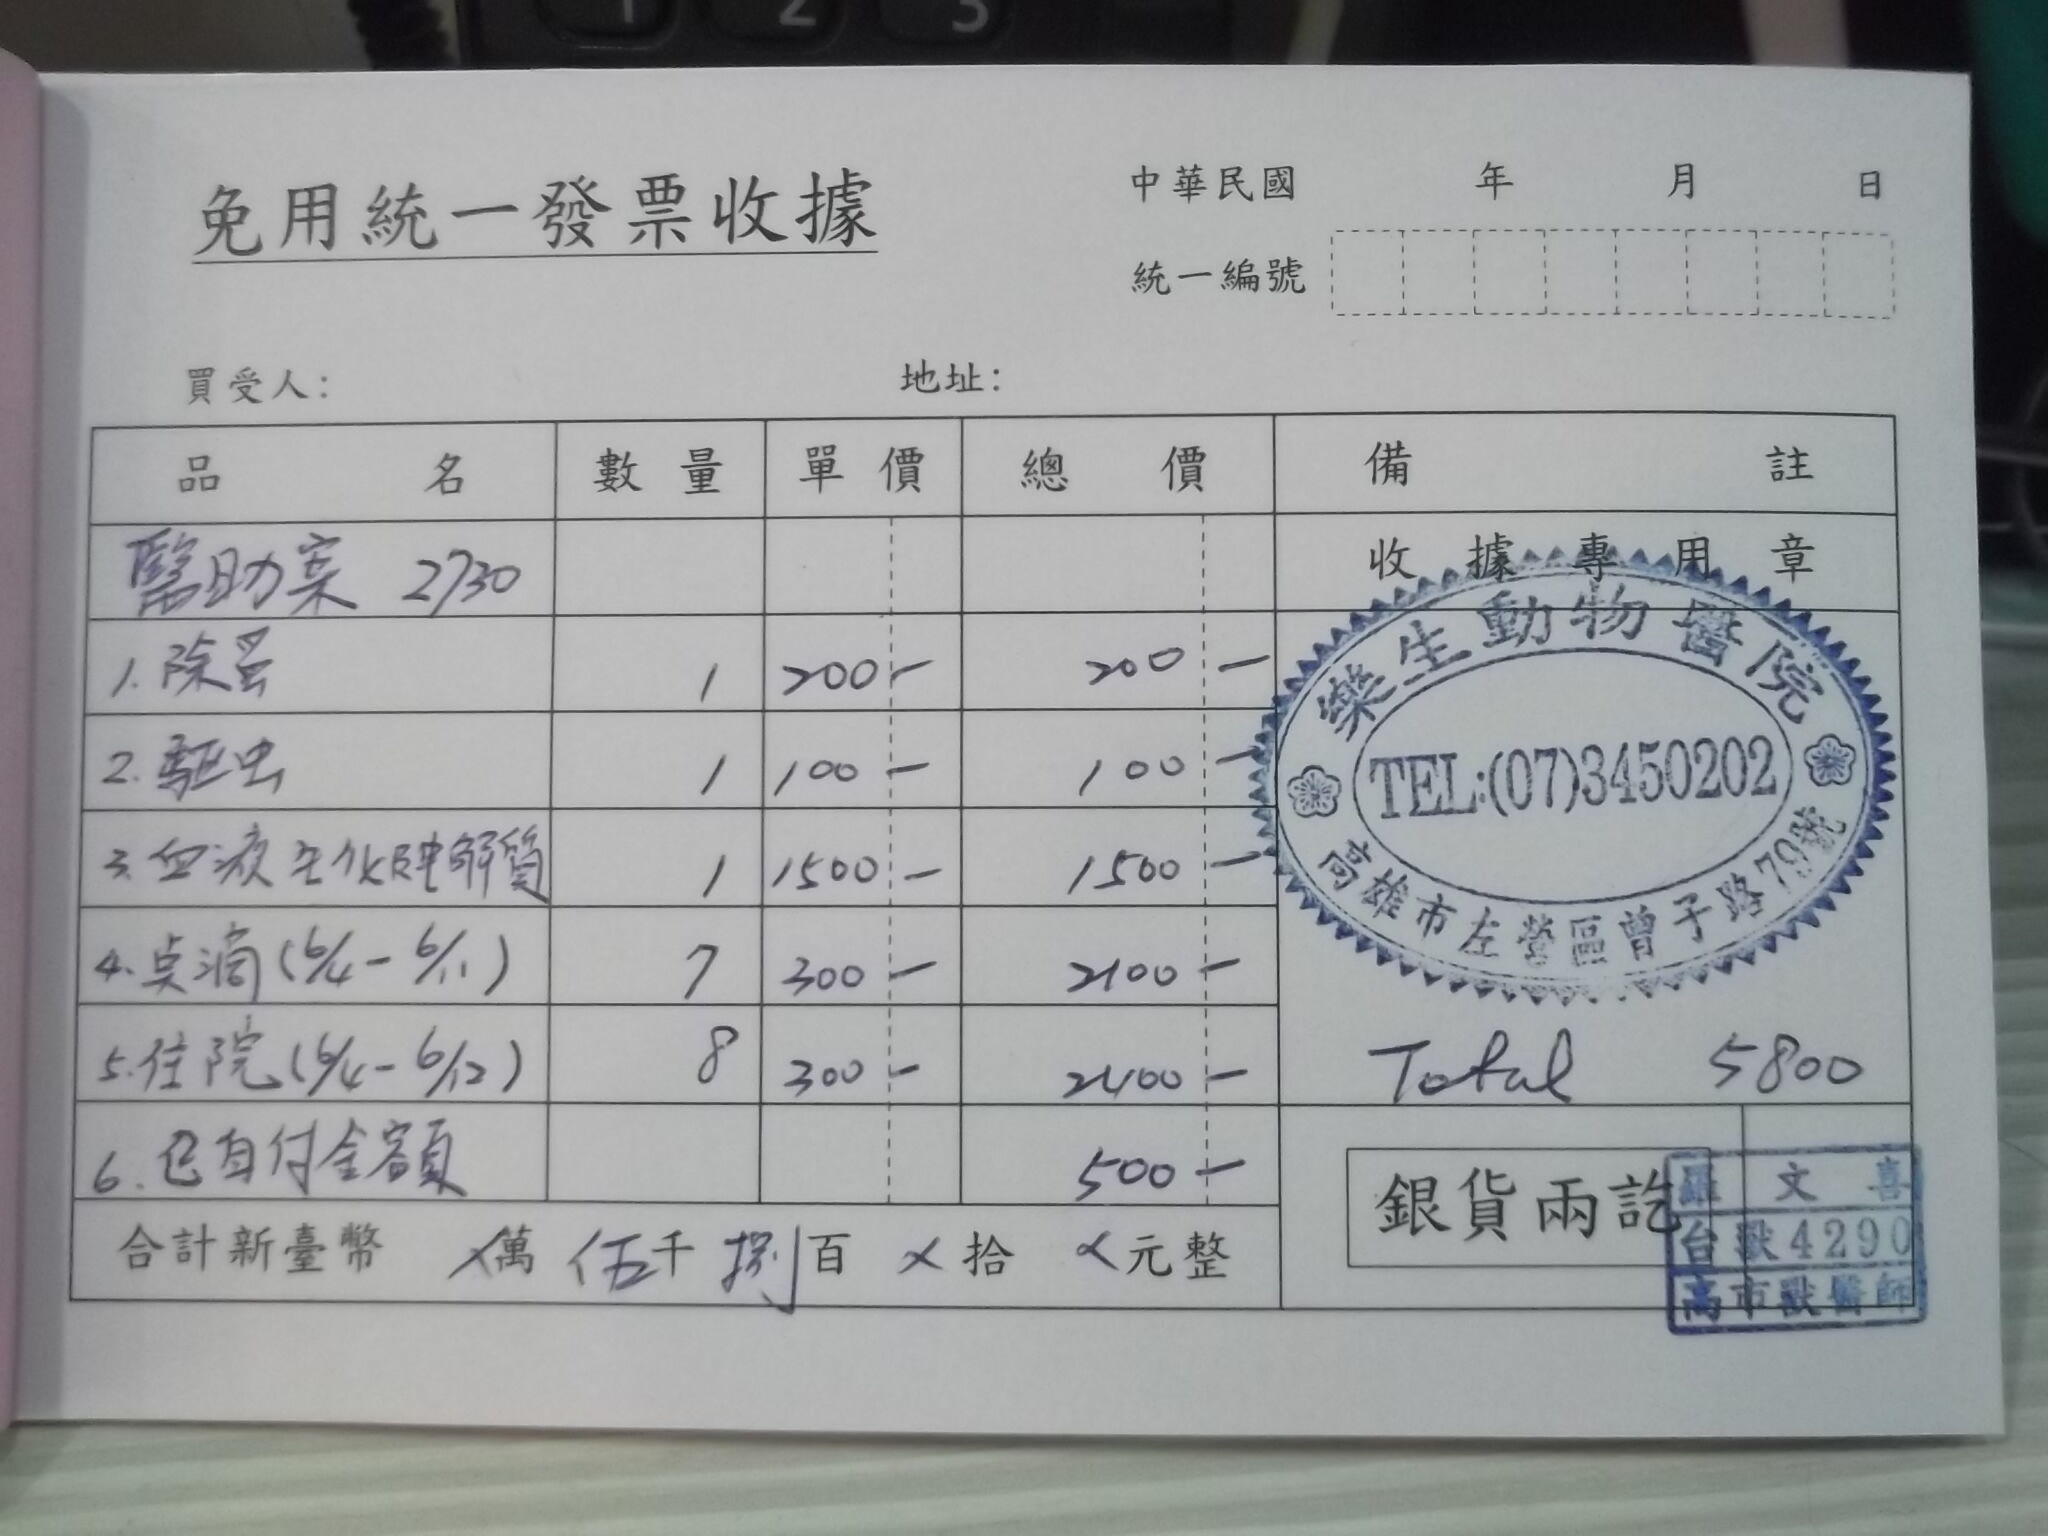 1 2 3
免用統一發票收據
中華民國 年 月 日
統一編號
買受人: 地址:
品名 數量 單價 總價 備註
醫助案 2730 收據專用章
1. 除蚤 1 200 - 200 -
2. 驅虫 1 100 - 100 -
3. 血液生化電解質 1 1500 - 1500 -
4. 點滴 (6/4 - 6/11) 7 300 - 2100 -
5. 住院 (6/4 - 6/12) 8 300 - 2400 -
6. 已自付金額 500 -
樂生動物醫院
TEL:(07)3450202
高雄市左營區曾子路79號
Total 5800
合計新臺幣 X萬 伍千 捌百 X拾 X元整
銀貨兩訖
羅文喜
台獸4290
高市獸醫師